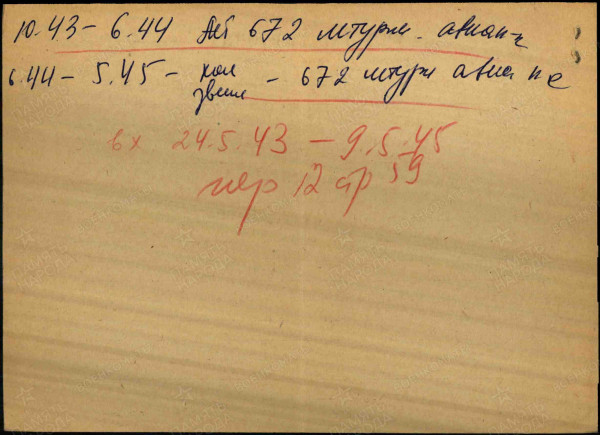 10.43 – 6.44 672 штурм. авиап-к
6.44 – 5.45 – ком звена – 672 штурм авиа п-к
вх 24.5.43 – 9.5.45
пер 12 стр 59